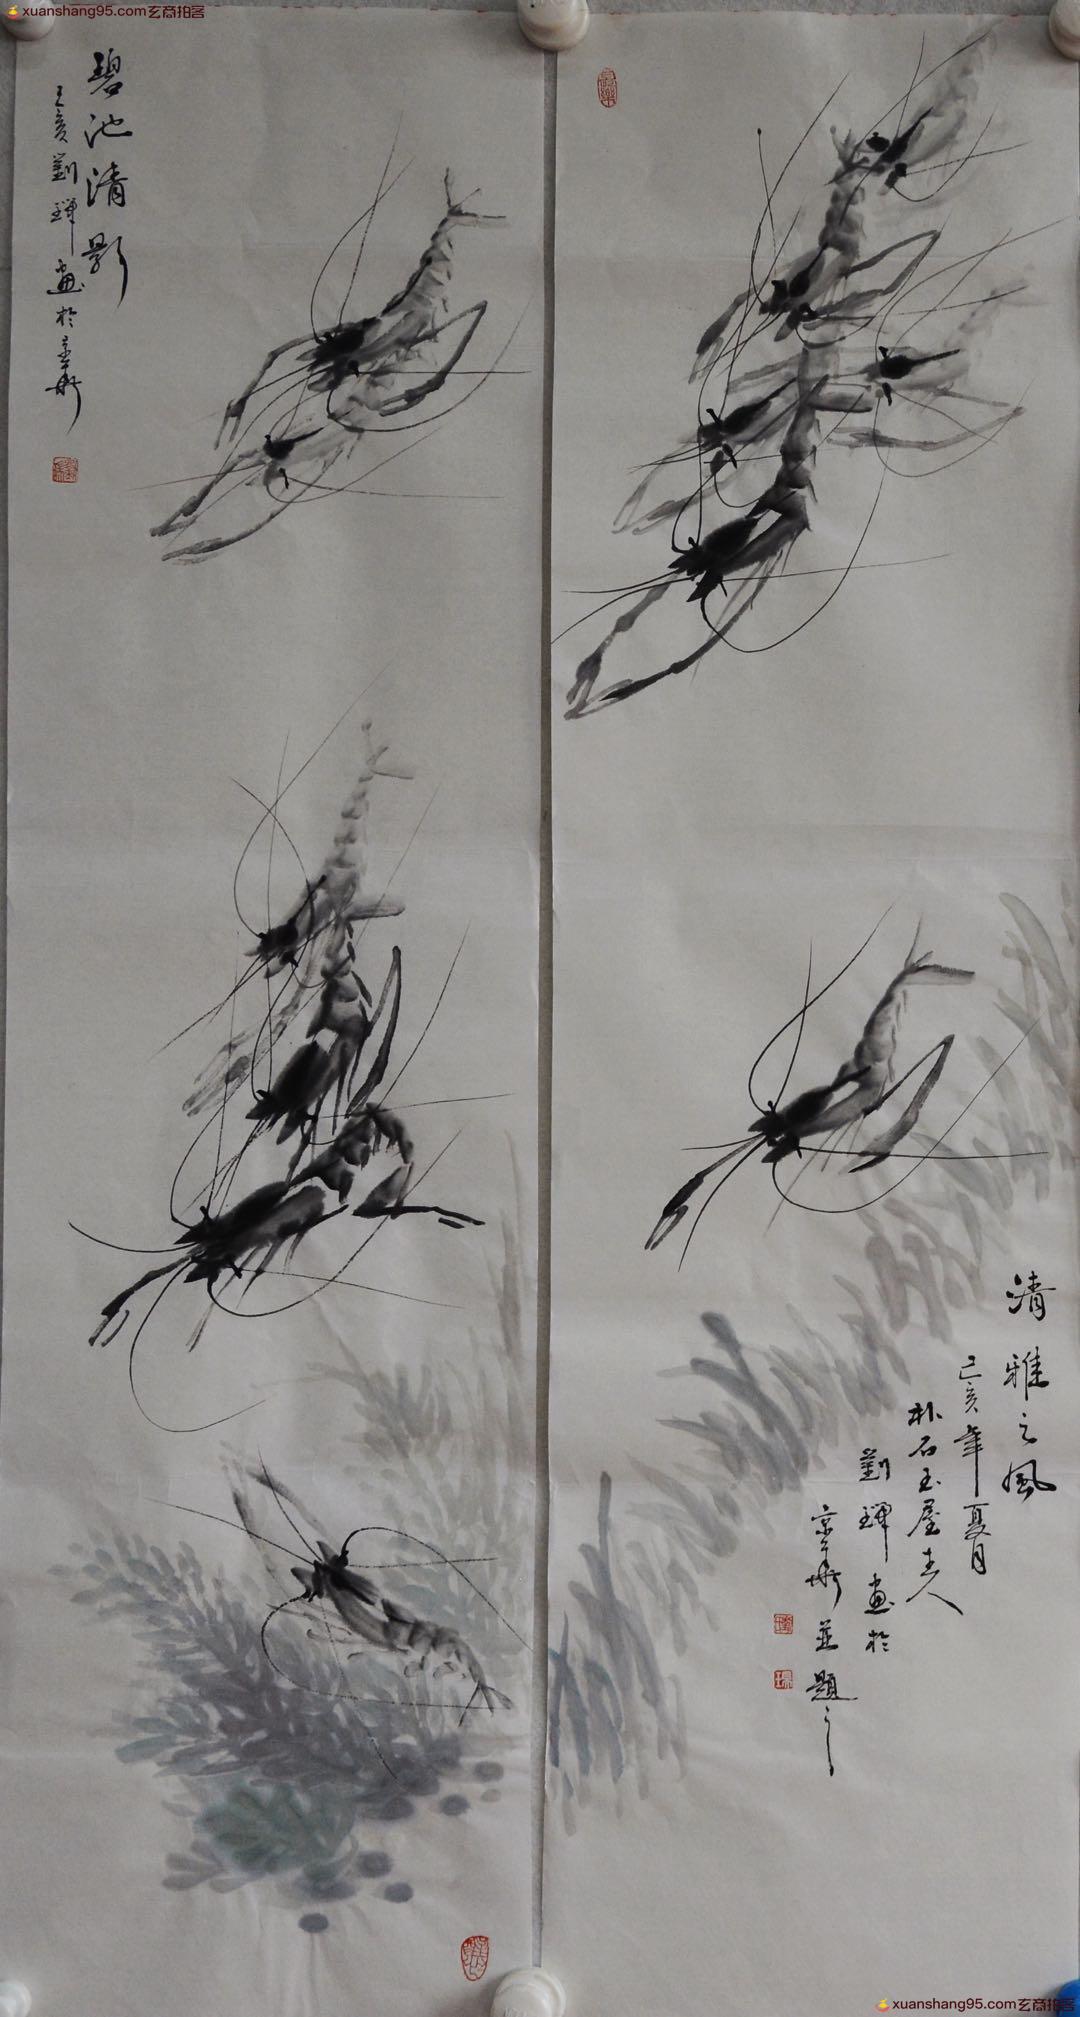 xuanshang95.com玄商拍客
xuanshang95.com玄商拍客
碧池清影
己亥劉琿畫於京華
清雅之風
己亥年夏月
朴石玉屋主人
劉琿畫於
京華並題之
xuanshang95.com玄商拍客